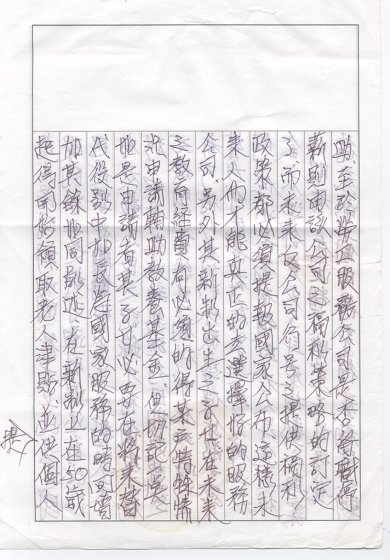 助,至於常工服務公司是否給職停
薪則由該公司之福利策略的訂定
了,而未來公司行号之提供福利
政策都必須提報國家公布,這樣未
來人們才能真正的去選擇好的服務
公司,另外其新制出生之子在在未來
之教育經費有必須的得某云特殊情
況申請輔助教養基金,但切記的是
他是申請者其子女必要在將來替
代役影中加長為國家服務的時间增
加其餘如同前述,在新制上在50歲
起得同皆領取老人津貼,並供個人